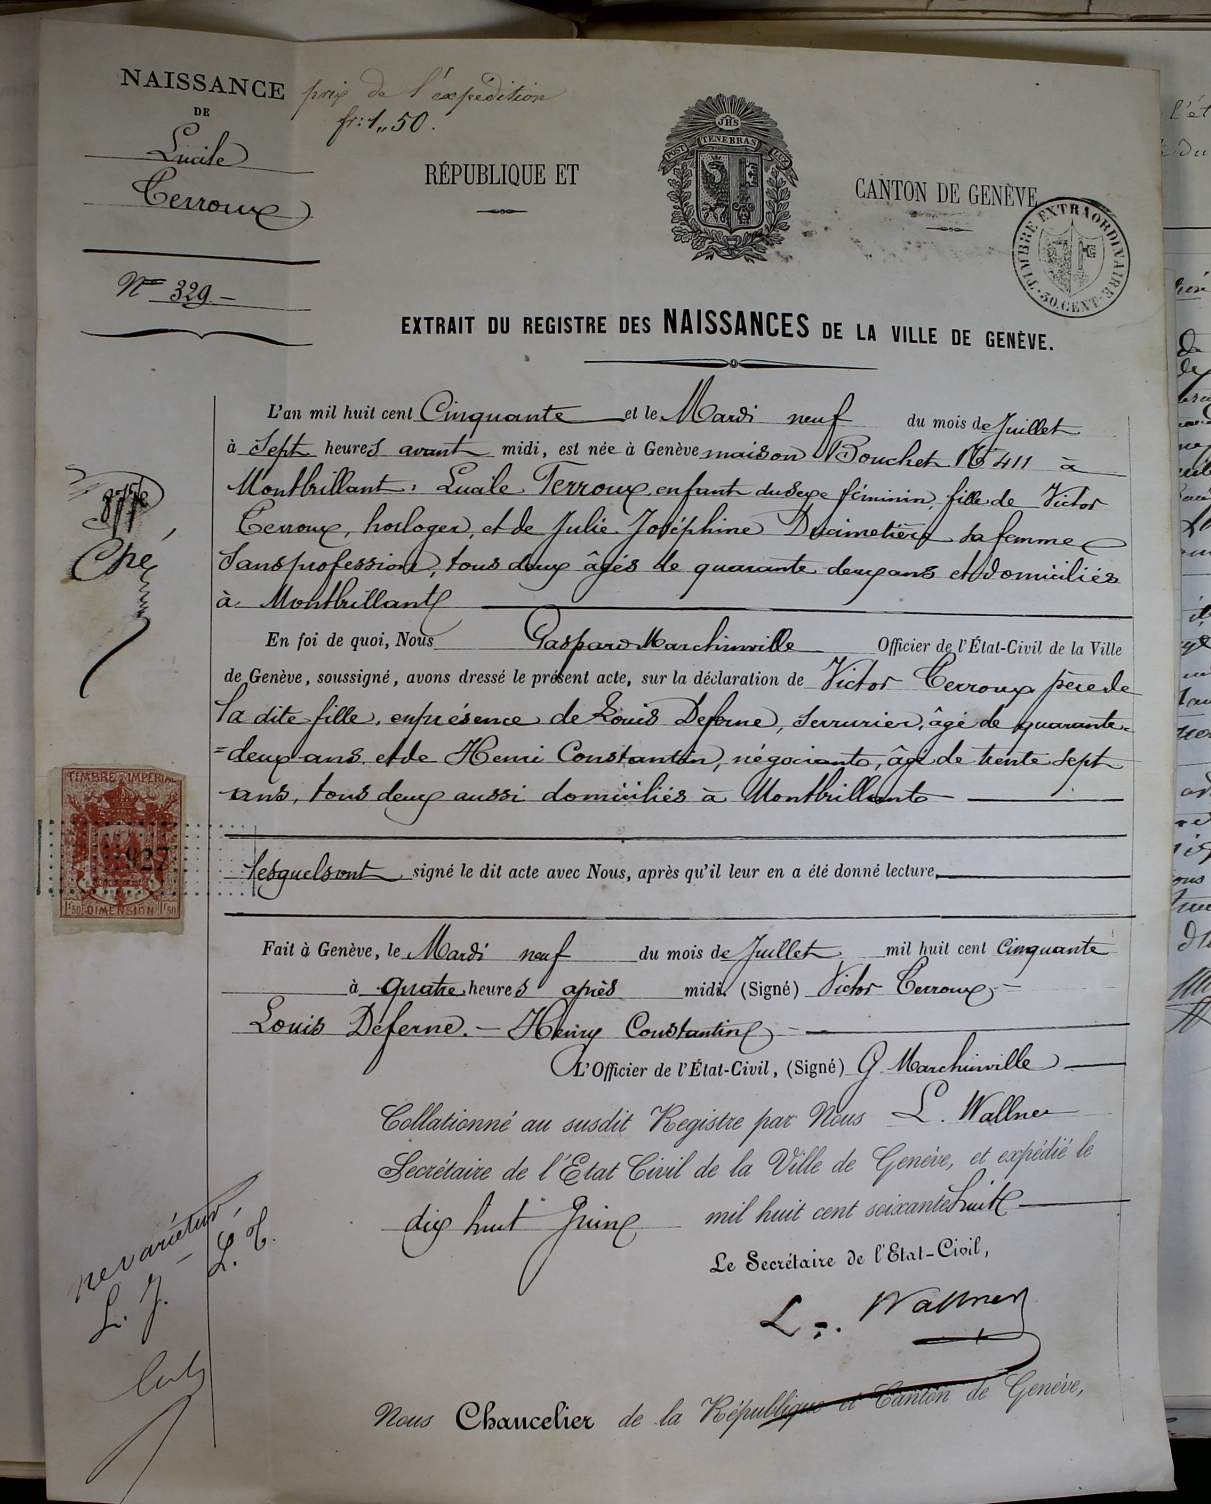 NAISSANCE
DE
Lucile
Terroux
Nº 329
prix de l'expédition
fr: 1,,50.
RÉPUBLIQUE ET
JHS
POST TENEBRAS LUX
CANTON DE GENÈVE
TIMBRE EXTRAORDINAIRE
50. CENT.
EXTRAIT DU REGISTRE DES NAISSANCES DE LA VILLE DE GENÈVE.
L'an mil huit cent Cinquante et le Mardi neuf du mois de Juillet
à Sept heures avant midi, est née à Genève maison Bouchet Nº 411 à
Montbrillant: Lucile Terroux, enfant du sexe féminin, fille de Victor
Terroux, horloger, et de Julie Joséphine Ducimetière sa femme
Sans profession, tous deux âgés de quarante deux ans et domiciliés
à Montbrillant
877e
En foi de quoi, Nous Gaspard Marchinville Officier de l'État-Civil de la Ville
de Genève, soussigné, avons dressé le présent acte, sur la déclaration de Victor Terroux père de
la dite fille, en présence de Louis Deferne, serrurier, âgé de quarante-
=deux ans et de Henri Constantin, négociant, âgé de trente sept
ans, tous deux aussi domiciliés à Montbrillant
TIMBRE IMPÉRIAL
927
1f50 DIMENSION 1f50
lesquels ont signé le dit acte avec Nous, après qu'il leur en a été donné lecture.
Fait à Genève, le Mardi neuf du mois de Juillet mil huit cent Cinquante
à quatre heures après midi. (Signé) Victor Terroux –
Louis Deferne. – Henry Constantin –
L'Officier de l'État-Civil, (Signé) G Marchinville
Collationné au susdit Registre par Nous L. Wallner
Secrétaire de l'Etat Civil de la Ville de Genève, et expédié le
dix huit Juin mil huit cent soixante huit
ne varietur
L. J. L. T.
Le Secrétaire de l'Etat-Civil,
L. Wallner
Nous Chancelier de la République et Canton de Genève,